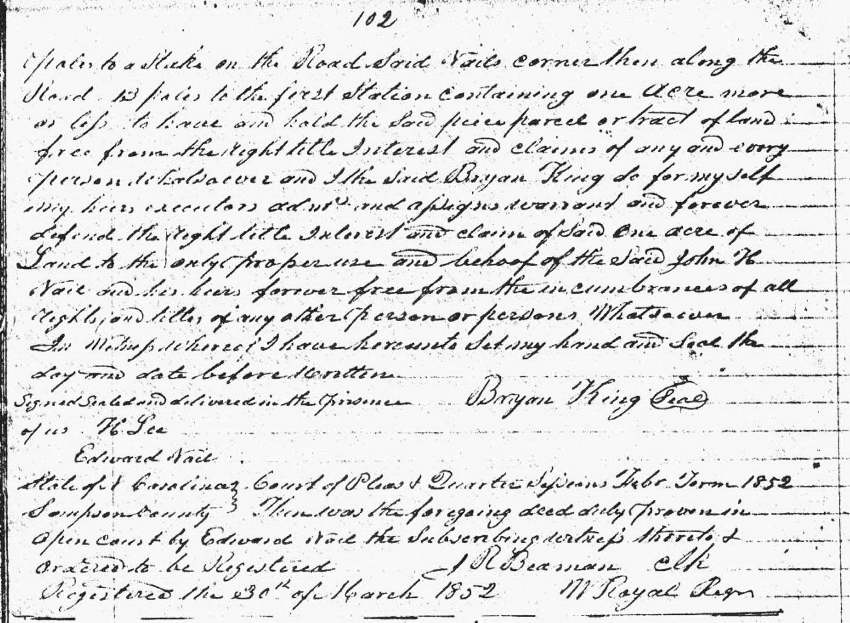 102
poles to a Stake on the Road Said Nails corner then along the
Road 13 poles to the first Station containing one Acre more
or less to have and hold the Said peice parcel or tract of land
free from the right title Interest and claims of any and every
person Whatsoever and I the Said Bryan King do for myself
my heirs executors admrs and assigns warrant and forever
defend the right title Interest and claim of Said One acre of
Land to the only proper use and behoof of the Said John H
Nail and his heirs forever free from the incumbrances of all
rights and titles of any other person or persons Whatsoever
In Witness Whereof I have hereunto Set my hand and Seal the
day and date before Written
Signed Sealed and delivered in the presence Bryan King Seal
of us H Lee
Edward Nail
State of N Carolina } Court of Pleas & Quarter Sessions Febr. Term 1852
Sampson County } Then was the foregoing deed duly proven in
Open court by Edward Nail the Subscribing witness thereto &
ordered to be Registered J R Beaman clk
Registered the 30th of March 1852 W Royal Regr